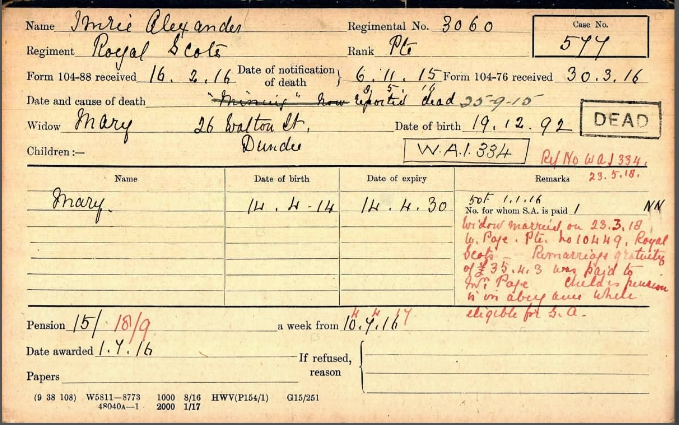 Name Imrie Alexander Regimental No. 3060 Case No.
Regiment Royal Scots Rank Pte 577
Form 104-88 received 16.2.16 Date of notification of death } 6.11.15 Form 104-76 received 30.3.16
Date and cause of death "Missing" now reported dead 25-9-15
Widow Mary 26 Walton St, Date of birth 19.12.92 DEAD
Dundee
Children:— W.A.1.334 Ref No WA1334.
23.5.18.
Name Date of birth Date of expiry Remarks
Mary 14.4.14 14.4.30
1.1.16
No. for whom S.A. is paid 1 NN
Widow married on 23.3.18
W. Page. Pte. No 10449, Royal
Scots — Remarriage gratuity
of £35.4.3 was paid to
Mrs Page Child's pension
is in abeyance while
eligible for S.A.
Pension 15/ 18/9 a week from 10.4.16 4 4 17
Date awarded 1.4.16
If refused, reason {
Papers
(9 38 108) W5811—8773 1000 8/16 HWV(P154/1) G15/251
48040A—1 2000 1/17